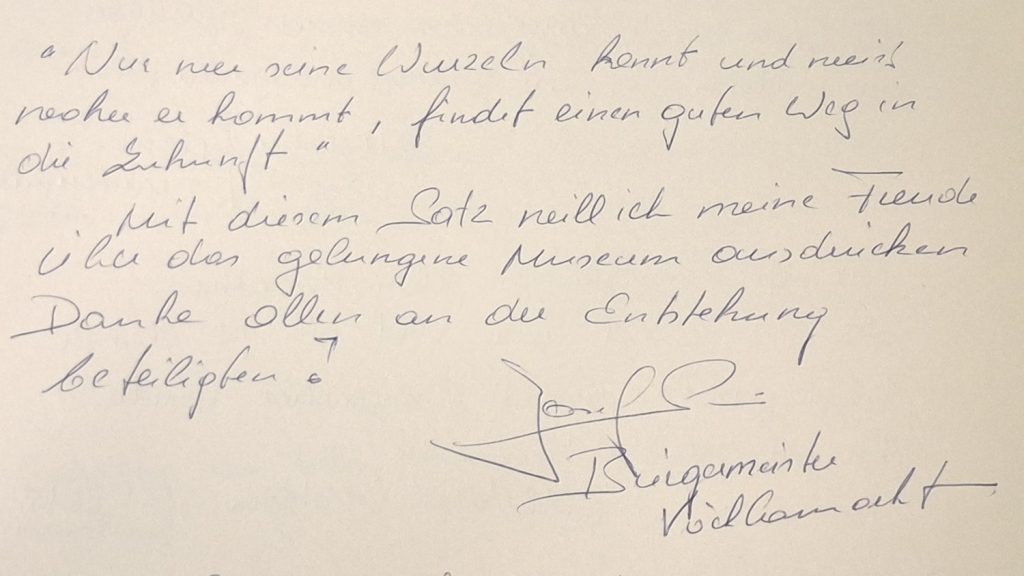 "Nur wer seine Wurzeln kennt und weiß
woher er kommt, findet einen guten Weg in
die Zukunft"
Mit diesem Satz will ich meine Freude
über das gelungene Museum ausdrücken
Danke allen an der Entstehung
beteiligten!
Josef
Bürgermeister
Vöcklamarkt